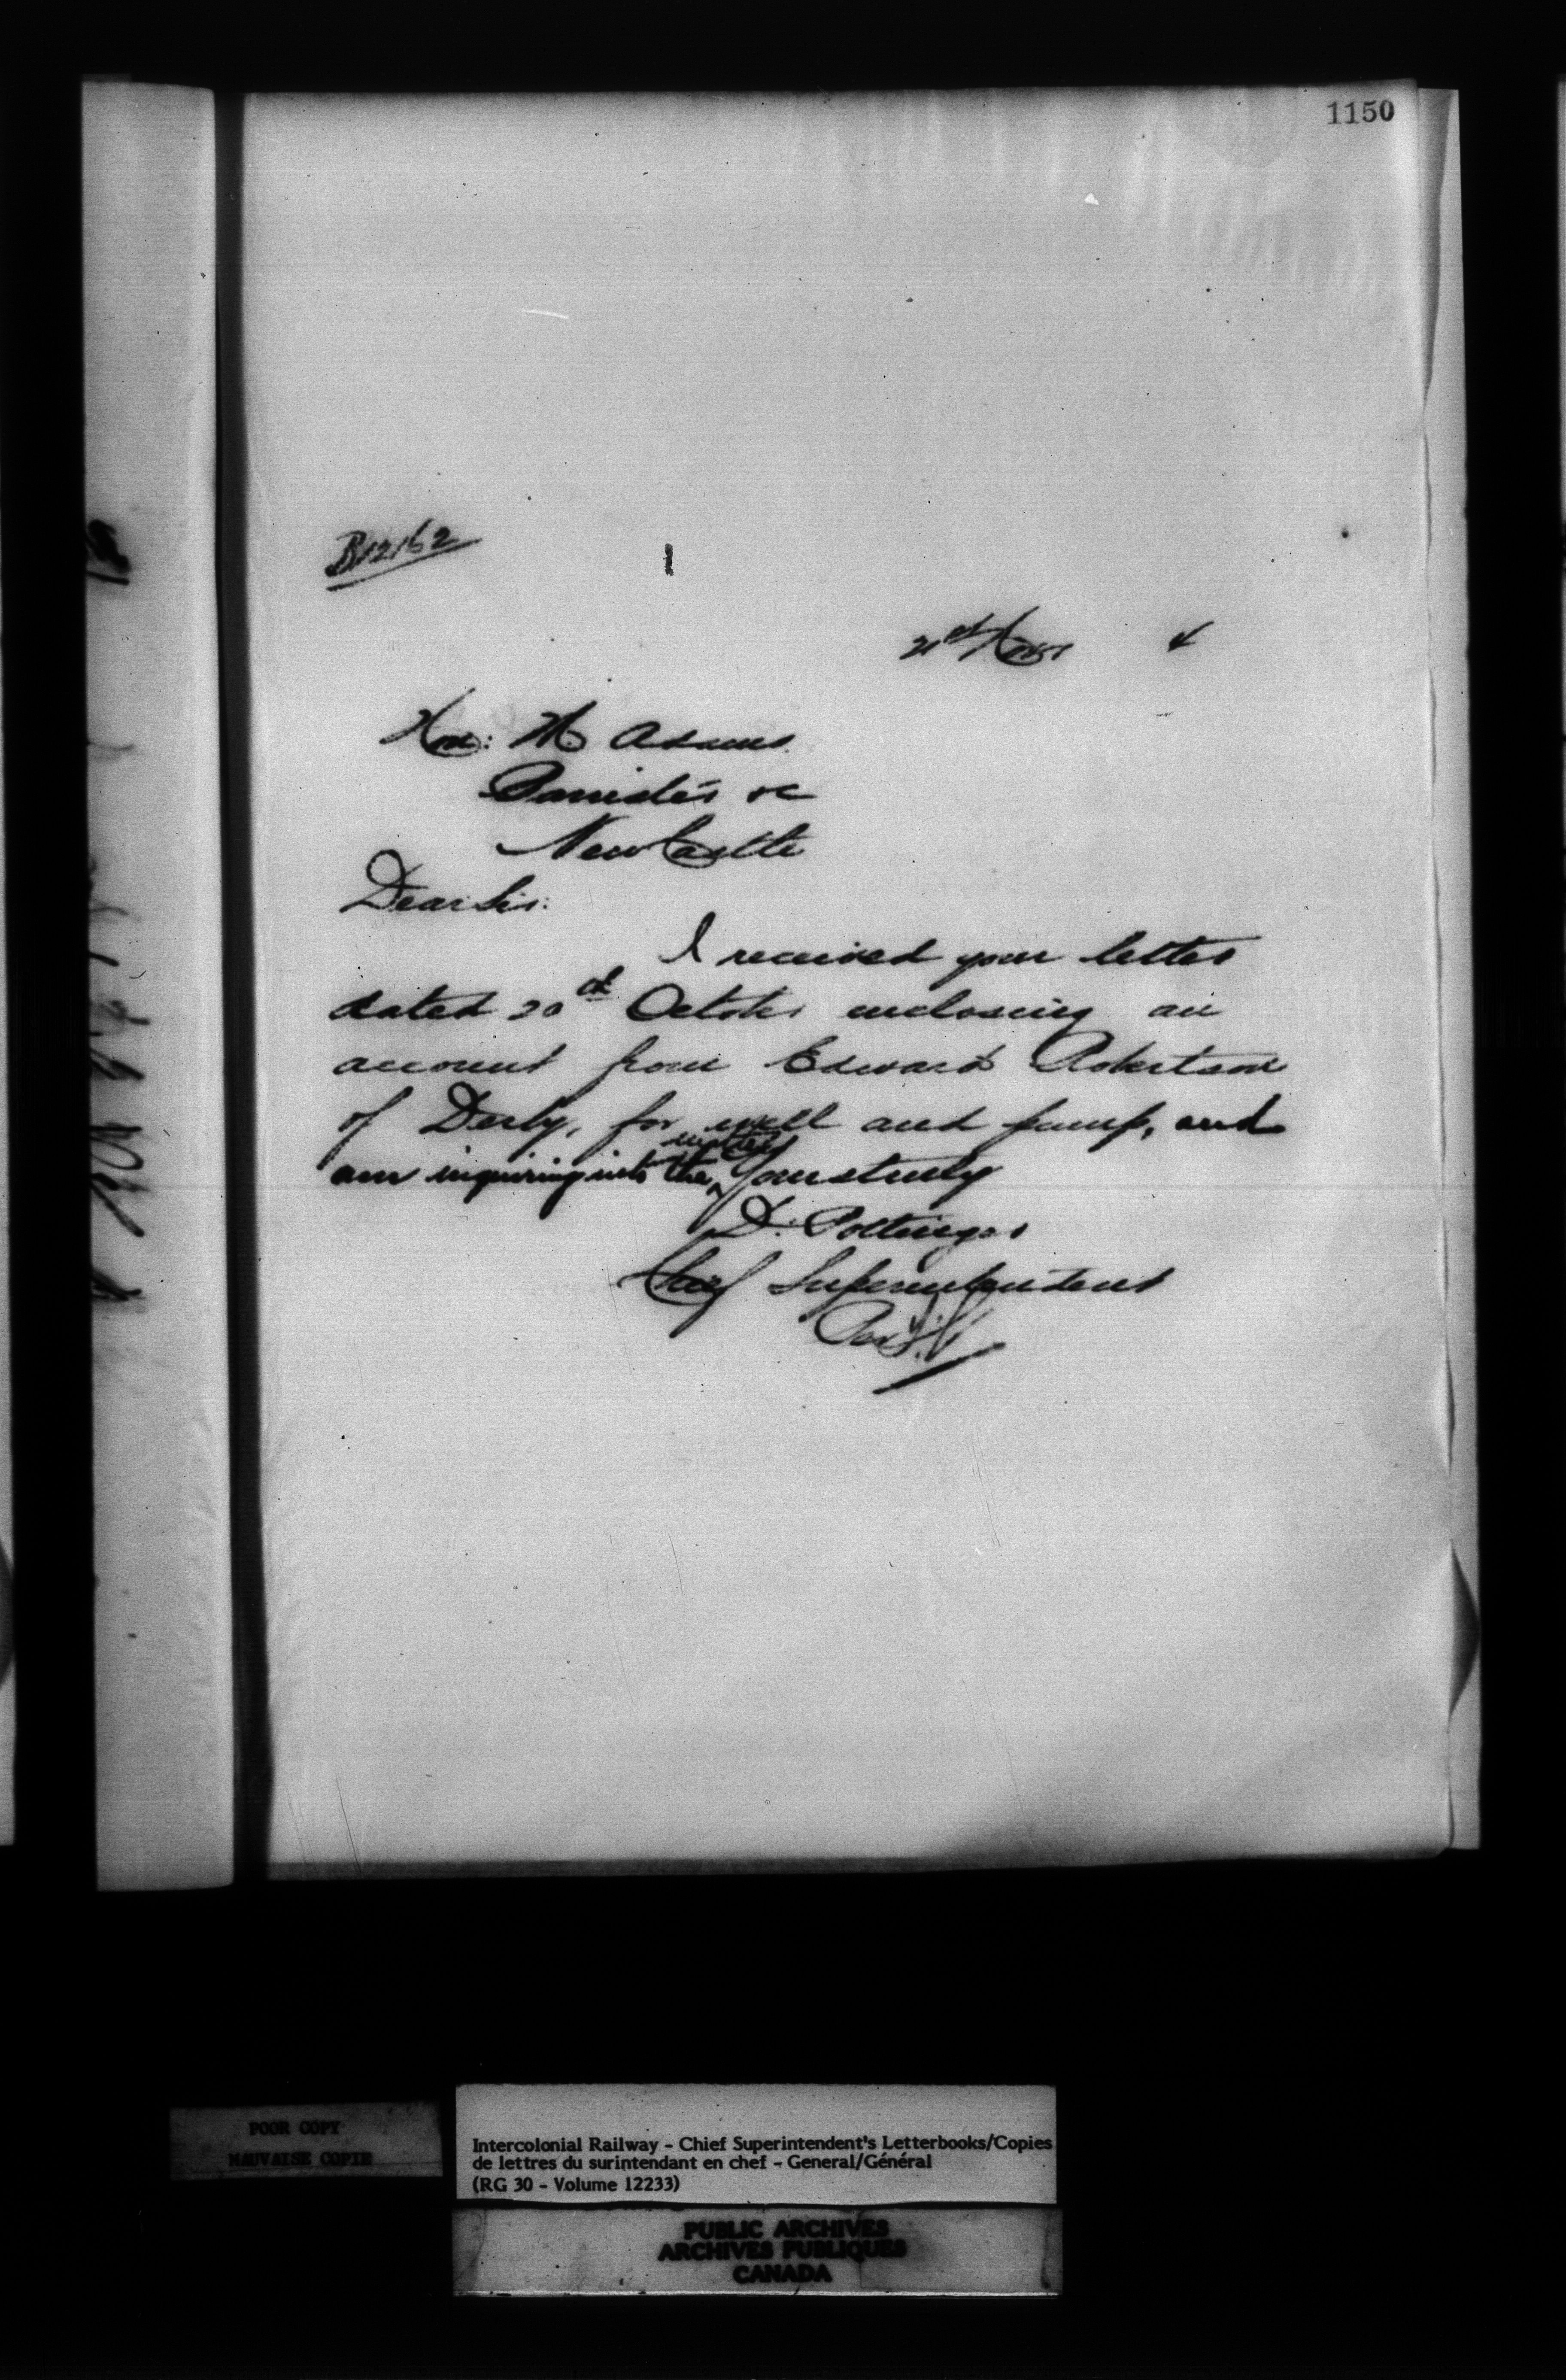 1150
B12162
21st Nov 4
Hon: M. Adams
Barrister &c
NewCastle
Dear Sir:
I received your letter
dated 20th October enclosing an
account from Edward Robertson
of Derby, for well and pump, and
matter
am inquiring into the Yours truly
D. Pottinger
Chief Superintendent
Per
POOR COPY
MAUVAISE COPIE
Intercolonial Railway - Chief Superintendent's Letterbooks/Copies
de lettres du surintendant en chef - General/Général
(RG 30 - Volume 12233)
PUBLIC ARCHIVES
ARCHIVES PUBLIQUES
CANADA